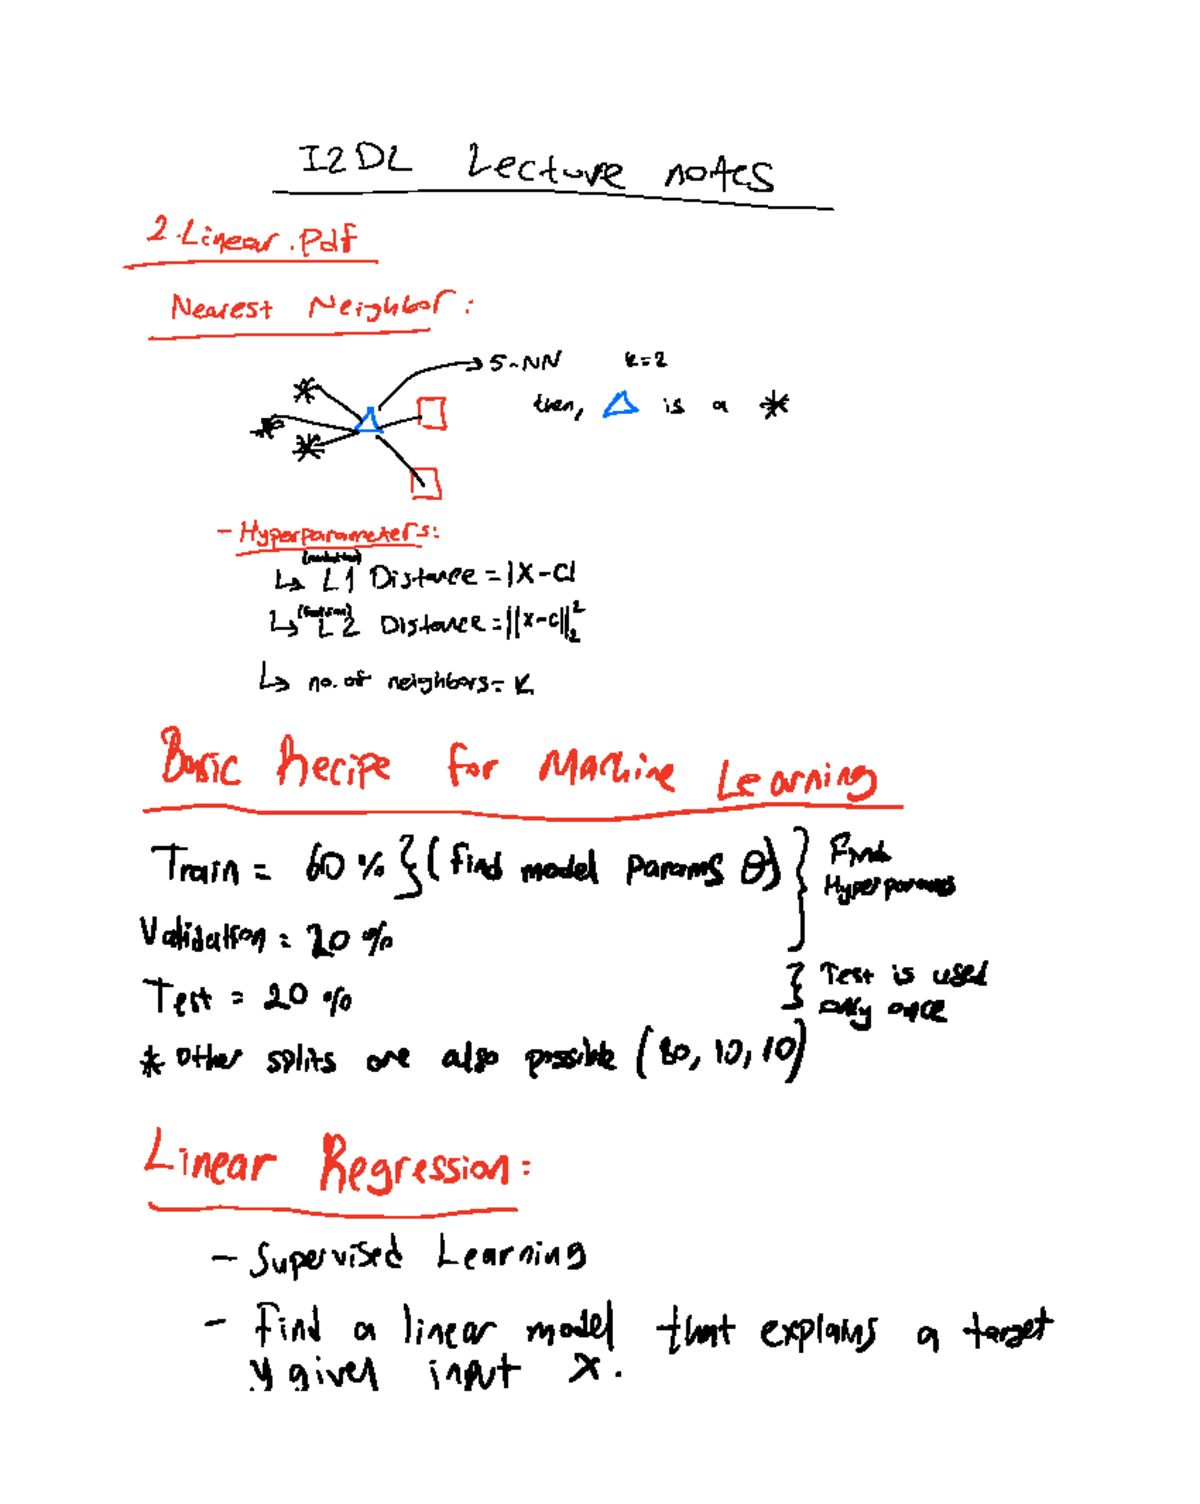 I2DL Lecture notes
2.Linear.Pdf
Nearest Neighbor:
5-NN k=2
then, △ is a *
- Hyperparameters:
↳ L1 Distance = |X-C|
↳ L2 Distance = ||x-c||₂²
↳ no. of neighbors = K
Basic Recipe for Machine Learning
Train = 60 % } (find model params θ) } Find
Hyperparams
Validation = 20 %
Test = 20 % } Test is used
only once
* other splits are also possible (80, 10, 10)
Linear Regression:
- Supervised Learning
- Find a linear model that explains a target
y given input x.